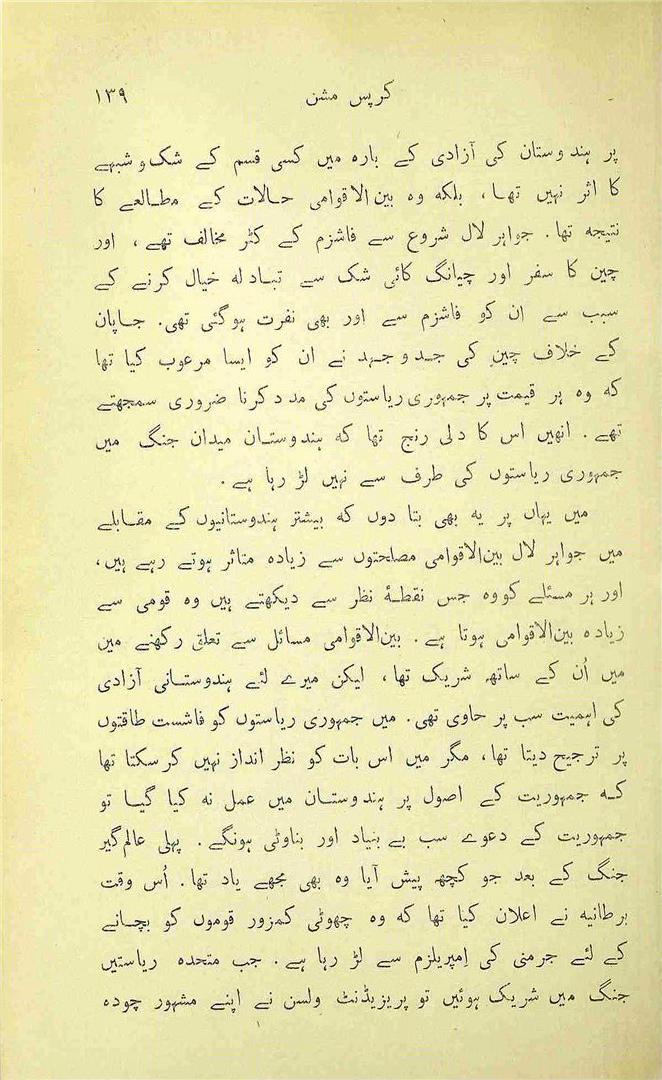 کرپس مشن ۱۳۹
پر ہندوستان کی آزادی کے بارہ میں کسی قسم کے شک و شبہے
کا اثر نہیں تھا، بلکہ وہ بین‌الاقوامی حالات کے مطالعے کا
نتیجہ تھا. جواہر لال شروع سے فاشزم کے کٹر مخالف تھے، اور
چین کا سفر اور چیانگ کائی شک سے تبادلہ خیال کرنے کے
سبب سے ان کو فاشزم سے اور بھی نفرت ہوگئی تھی. جاپان
کے خلاف چین کی جدوجہد نے ان کو ایسا مرعوب کیا تھا
کہ وہ ہر قیمت پر جمہوری ریاستوں کی مدد کرنا ضروری سمجھتے
تھے. انھیں اس کا دلی رنج تھا کہ ہندوستان میدان جنگ میں
جمہوری ریاستوں کی طرف سے نہیں لڑ رہا ہے.
میں یہاں پر یہ بھی بتا دوں کہ بیشتر ہندوستانیوں کے مقابلے
میں جواہر لال بین‌الاقوامی مصلحتوں سے زیادہ متاثر ہوتے رہے ہیں،
اور ہر مسئلے کو وہ جس نقطۂ نظر سے دیکھتے ہیں وہ قومی سے
زیادہ بین‌الاقوامی ہوتا ہے. بین‌الاقوامی مسائل سے تعلق رکھنے میں
میں اُن کے ساتھ شریک تھا، لیکن میرے لئے ہندوستانی آزادی
کی اہمیت سب پر حاوی تھی. میں جمہوری ریاستوں کو فاشست طاقتوں
پر ترجیح دیتا تھا، مگر میں اس بات کو نظر انداز نہیں کرسکتا تھا
کہ جمہوریت کے اصول پر ہندوستان میں عمل نہ کیا گیا تو
جمہوریت کے دعوے سب بے بنیاد اور بناوٹی ہونگے. پہلی عالم‌گیر
جنگ کے بعد جو کچھ پیش آیا وہ بھی مجھے یاد تھا. اُس وقت
برطانیہ نے اعلان کیا تھا کہ وہ چھوٹی کمزور قوموں کو بچانے
کے لئے جرمنی کی اِمپریلزم سے لڑ رہا ہے. جب متحدہ ریاستیں
جنگ میں شریک ہوئیں تو پریزیڈنٹ ولسن نے اپنے مشہور چودہ